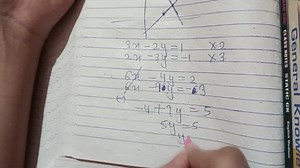 3x - 2y = 1 × 2
2x - 3y = -1 × 3
6x - 4y = 2
6x - 9y = -3
-4 + 9y = 5
5y = 5
y
General Kno
STATIC GK